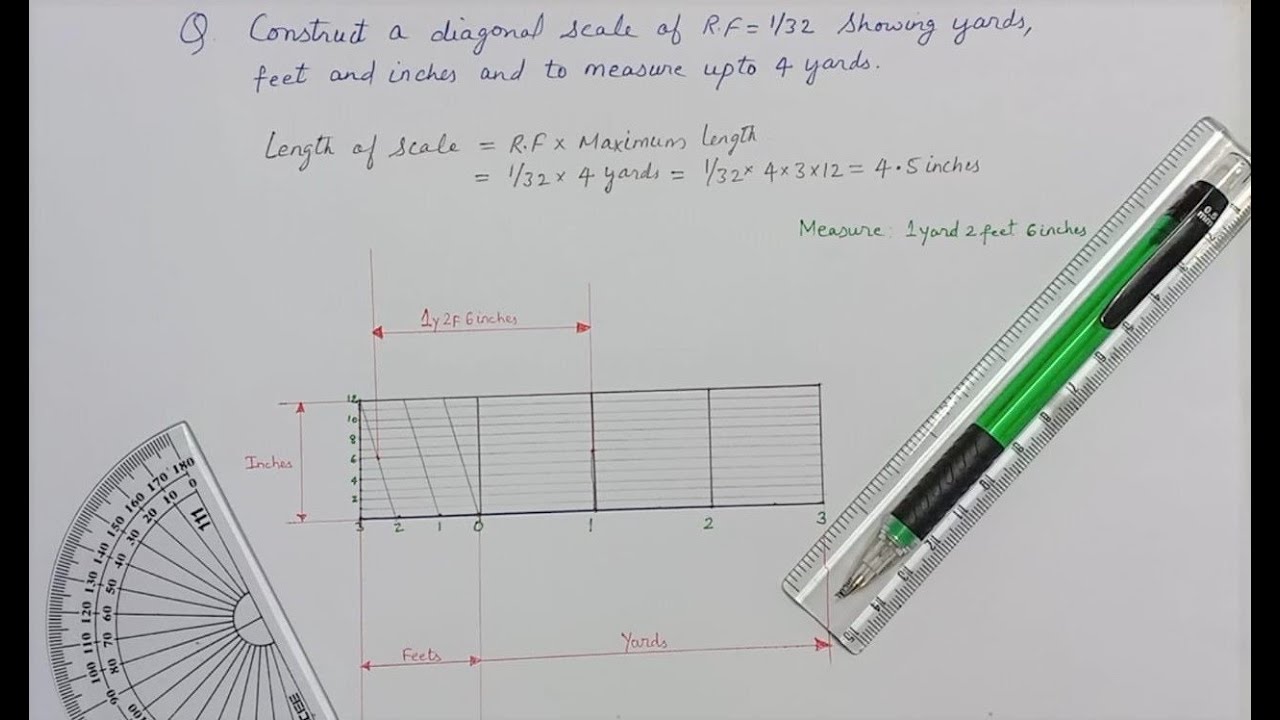 Q. Construct a diagonal scale of R.F = 1/32 showing yards,
feet and inches and to measure upto 4 yards.
Length of scale = R.F × Maximum length
= 1/32 × 4 yards = 1/32 × 4×3×12 = 4.5 inches
Measure: 1 yard 2 feet 6 inches
1y 2F 6 inches
12
10
8
6
4
2
Inches
3 2 1 0 1 2 3
Feets
Yards
0.5
mm
180 170 160 150 140 130 120 110 100 90
0 10 20 30 40 50 60 70 80